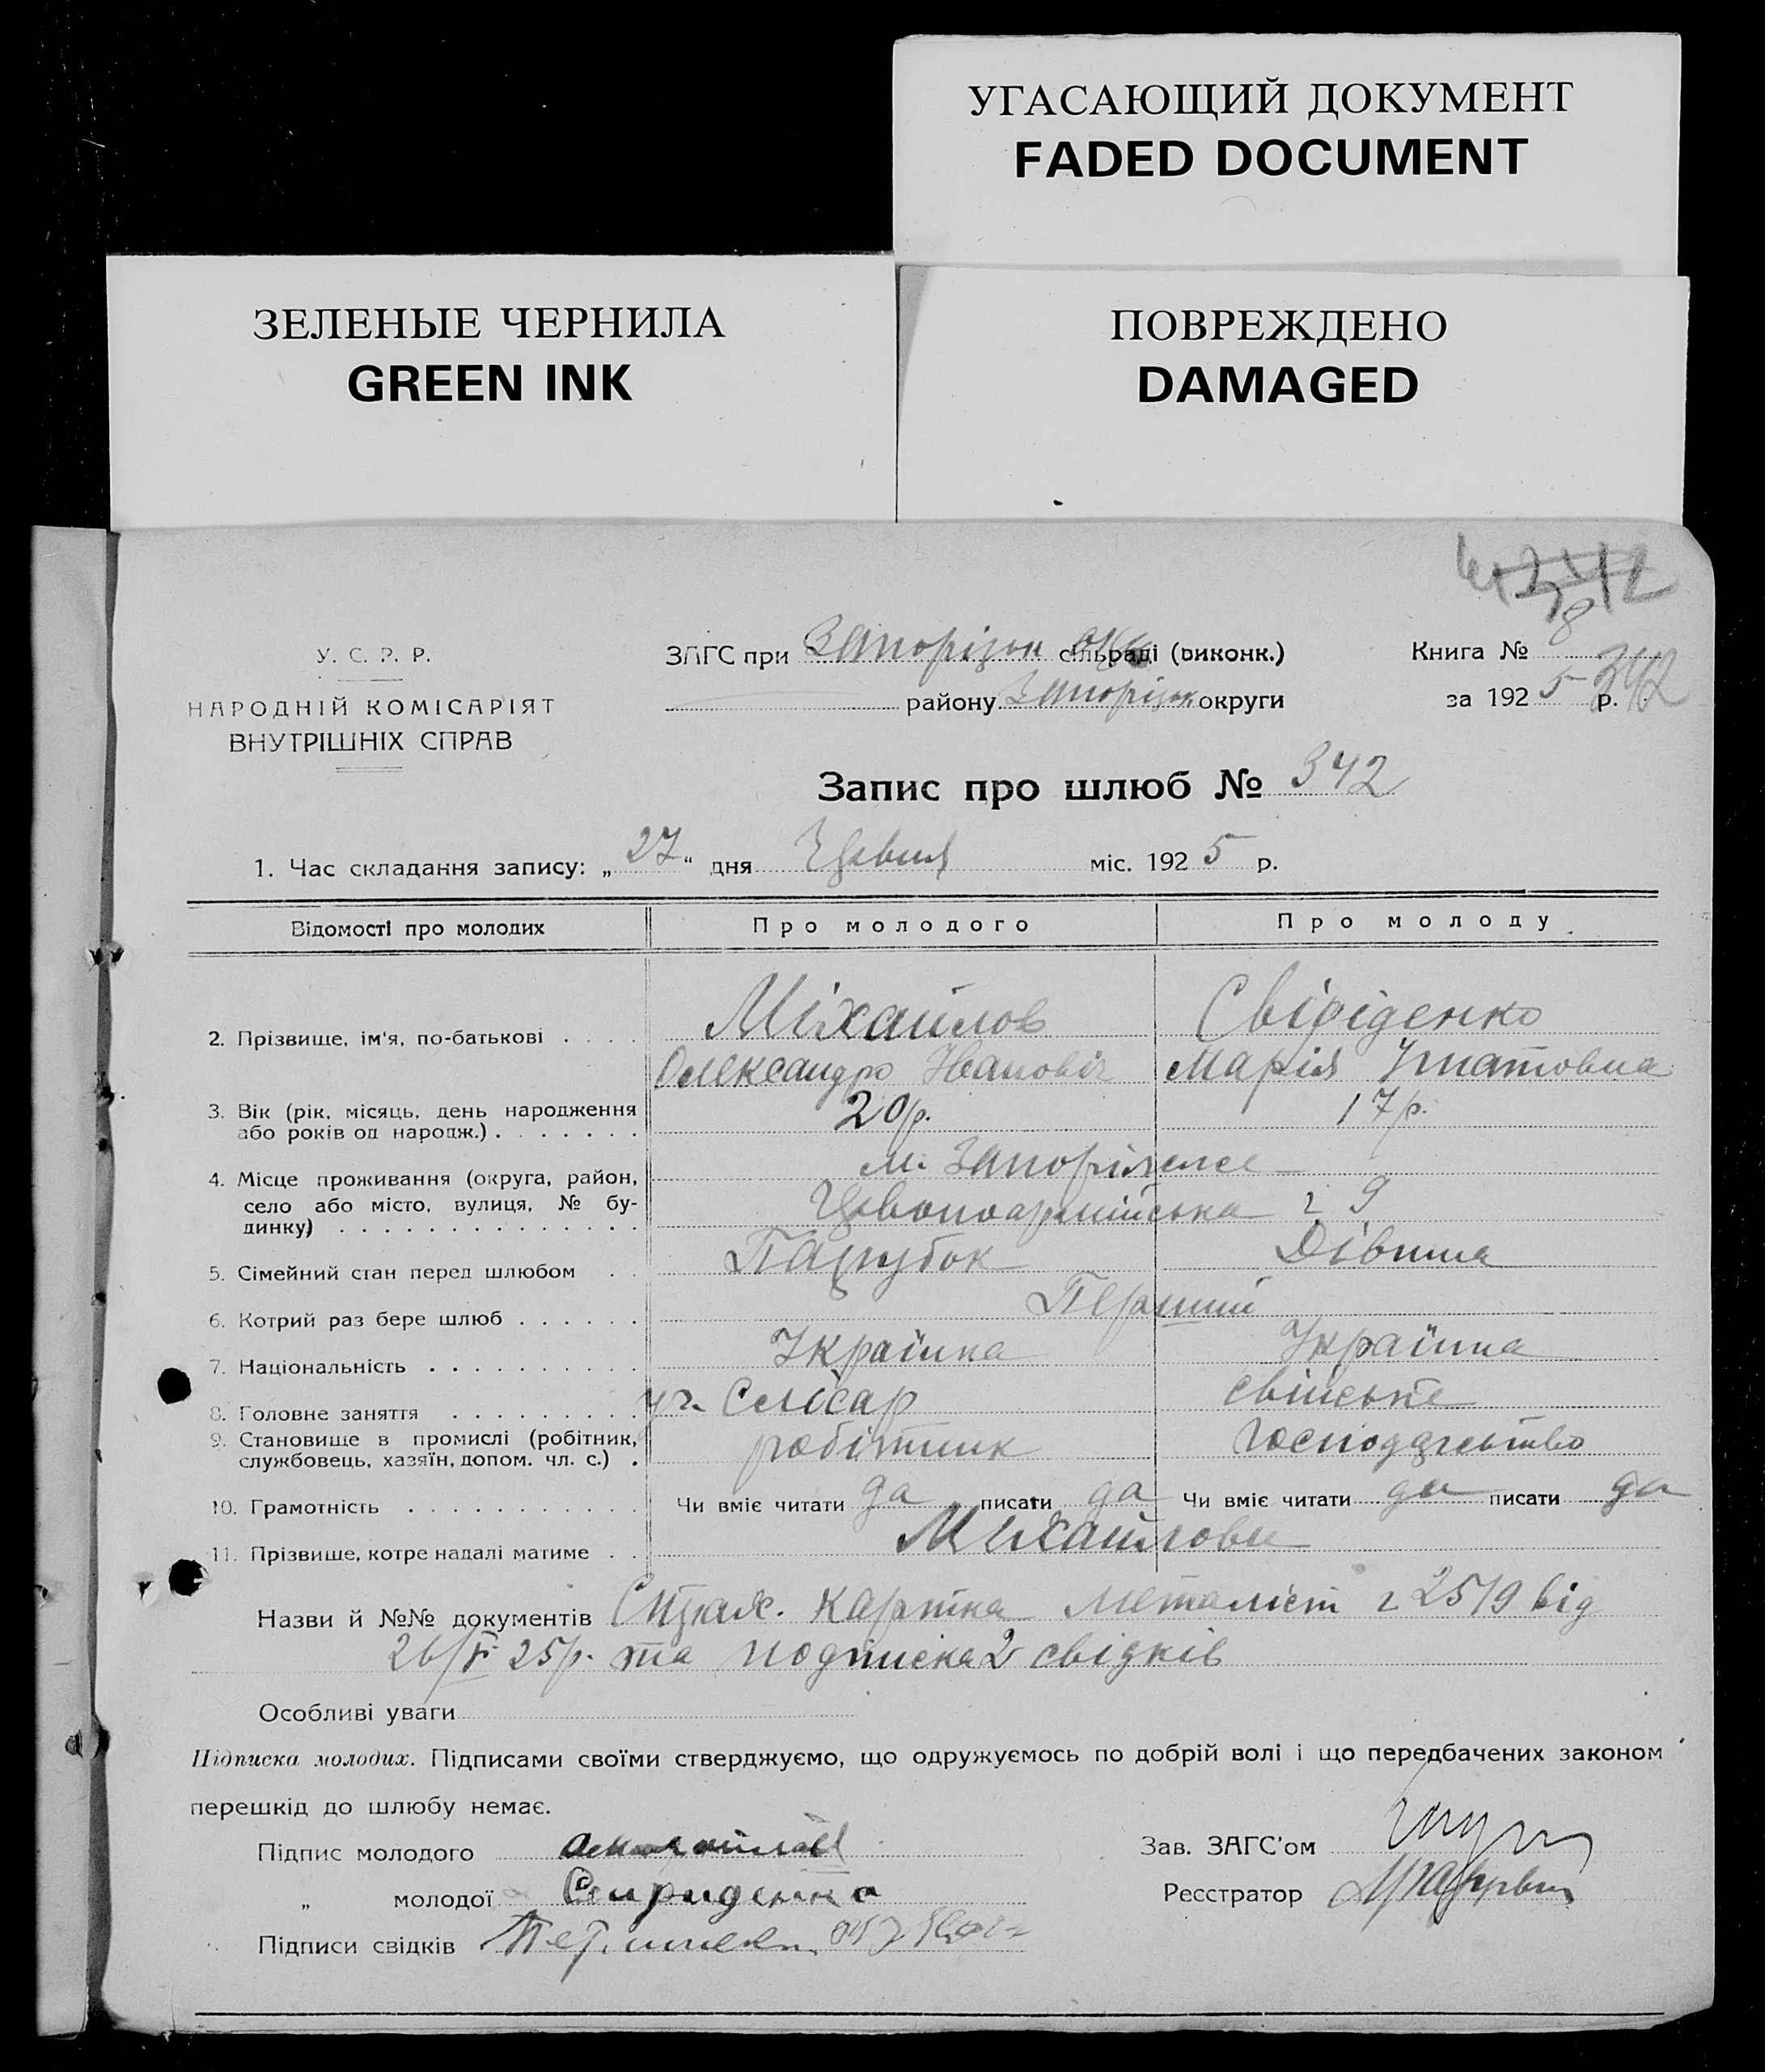 УГАСАЮЩИЙ ДОКУМЕНТ
FADED DOCUMENT
ЗЕЛЕНЫЕ ЧЕРНИЛА
GREEN INK
ПОВРЕЖДЕНО
DAMAGED
У. С. Р. Р.
НАРОДНІЙ КОМІСАРІЯТ
ВНУТРІШНІХ СПРАВ
ЗАГС при Запорізьк сільраді (виконк.)
району Запорізьк округи
Книга № 8
за 1925 р. 342
Запис про шлюб № 342
1. Час складання запису: „27“ дня Червня міс. 1925 р.
Відомості про молодих Про молодого Про молоду
2. Прізвище, ім'я, по-батькові . . . . Міхайлов Свіріденко
Олександр Іванович Марія Ігнатовна
3. Вік (рік, місяць, день народження або років од народж.) . . . . . . . 20 р. 17 р.
4. Місце проживання (округа, район, село або місто, вулиця, № будинку) . . . . . . . . . . . . . . м. Запоріжжє
Червоноармійська 9
5. Сімейний стан перед шлюбом . . Парубок Дівчина
6. Котрий раз бере шлюб . . . . . . Перший
7. Національність . . . . . . . . . . Українка Українка
8. Головне заняття . . . . . . . . . Слюсар свійське
9. Становище в промислі (робітник, службовець, хазяїн, допом. чл. с.) . робітник господарьство
10. Грамотність . . . . . . . . . . . Чи вміє читати да писати да Чи вміє читати да писати да
11. Прізвище, котре надалі матиме . . Михайлови
Назви й №№ документів Страх. картка Металіст 2519 від
26/V 25 р. та подписка 2 свідків
Особливі уваги
Підписка молодих. Підписами своїми стверджуємо, що одружуємось по добрій волі і що передбачених законом
перешкід до шлюбу немає.
Підпис молодого
„ молодої Свириденко
Підписи свідків
Зав. ЗАГС'ом
Реєстратор